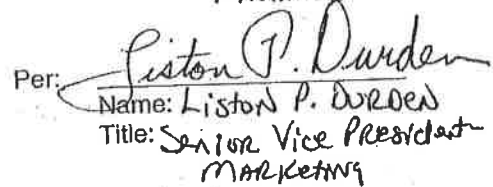 Per: Liston P. Durden
Name: Liston P. DURDEN
Title: Senior Vice President
MARKETING